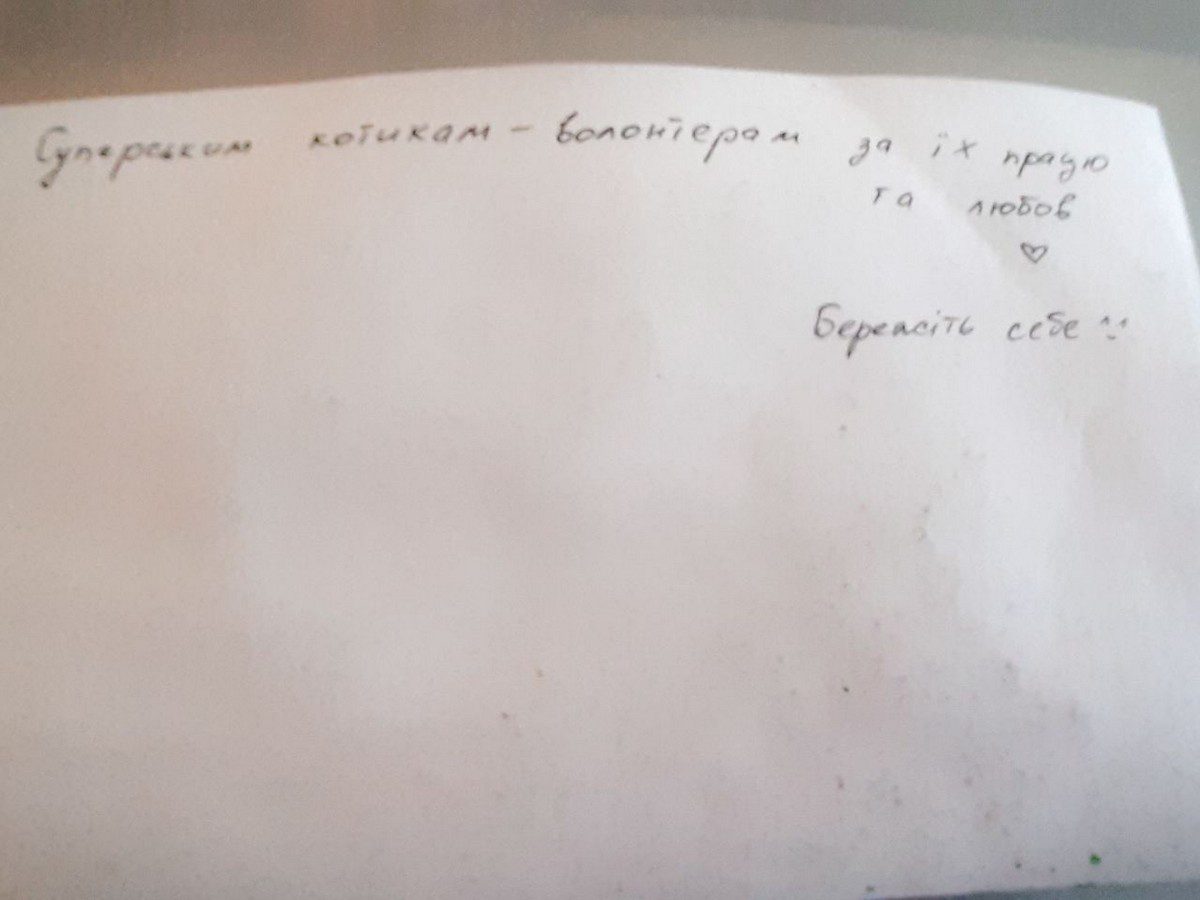 Суперським котикам - волонтерам за їх працю
та любов
♡
Бережіть себе ^^